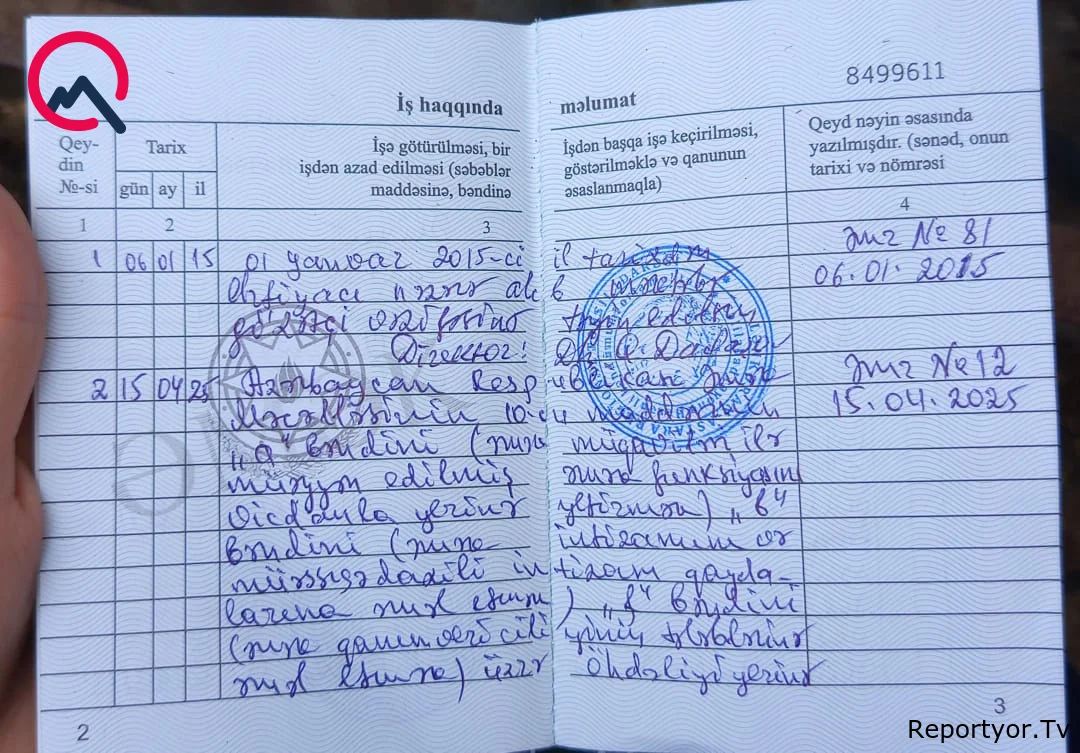 8499611
İş haqqında məlumat
Qey-
din
№-si
Tarix
gün ay il
İşə götürülməsi, bir
işdən azad edilməsi (səbəblər
maddəsinə, bəndinə
İşdən başqa işə keçirilməsi,
göstərilməklə və qanunun
əsaslanmaqla)
Qeyd nəyin əsasında
yazılmışdır. (sənəd, onun
tarixi və nömrəsi
1 2 3 4
1 06 01 15 01 yanvar 2015-ci il tarixdən əmr № 81
06.01.2015
gözətçi vəzifəsinə təyin edilsin
Direktor:
2 15 04 25 Azərbaycan Respublikası Əmək əmr № 12
Məcəlləsinin 10-cu maddəsinin 15.04.2025
„a" bəndini (əmək müqaviləsi ilə
müəyyən edilmiş əmək funksiyasını
vicdanla yerinə yetirmək) „b"
bəndini (əmək intizamına və
müəssisədaxili intizam qayda-
larına əməl etmək) bəndini
(əmək qanunvericiliyinin tələblərinə
əməl etmək) üzrə öhdəliyi yerinə
2
3
Reportyor.Tv